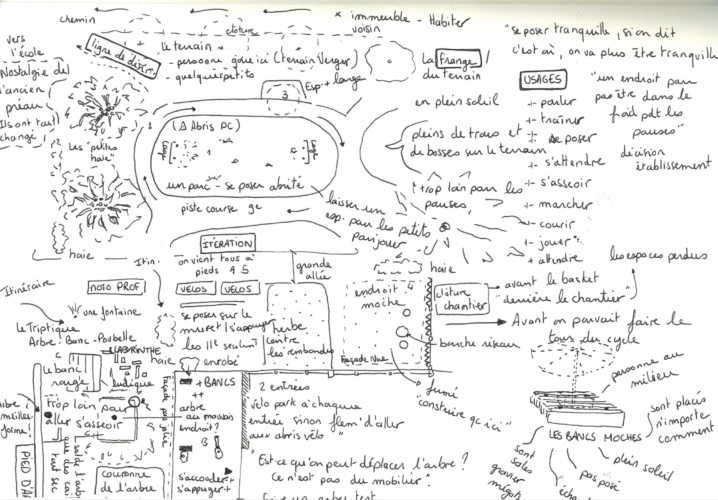 chemin
clôture
× immeuble - Habiter
voisin
"se poser tranquille, si on dit
c'est où, on va plus être tranquille
vers
l'école
ligne de désir
+ le terrain +
- personne joue ici (terrain Verger)
- quelques petits
Esp. + large
3
La Frange
du terrain
USAGES
Nostalgie de
l'ancien
préau
Ils ont tout
changé!
Les "petites
haie"
(Δ Abris PC)
cage
cage
un parc - se poser abrité
piste course
en plein soleil
pleins de trous et
de bosses sur le terrain
trop loin pour les
pauses,
laisser un
esp. pour les petits
pour jouer
+ parler
+ traîner
+ se poser
+ s'attendre
+- s'assoir
+- marcher
+- courir
+- jouer
+ attendre
"un endroit pour
pas être dans le
froid pdt les
pauses"
décision
établissement
haie
Itin.
ITÉRATION
on vient tous à
pieds 4 5
grande
allée
haie
endroit 4
moche
clôture
chantier
avant le basket
"derrière le chantier"
les espaces perdus
Avant on pouvait faire le
tour du cycle
Itinéraire
MOTO PROF
VELOS
VELOS
une fontaine
le Triptique
Arbre - Banc - Poubelle
LABYRINTHE
le banc
rouge
ludique
haie
enrobé
se poser sur le
muret / s'appuyer
les 111e seulent
herbe
contre
les rambardes
Façade Vue
fumi
"construire qc ici"
personne au
milieu
sont placés
n'importe
comment
LES BANCS MOCHES
plein soleil
pas posé
sont
sales
gravier
mégots
trop loin pour
aller s'assoir
+ BANCS
++
arbre
au mauvais
endroit?
B
s'accouder+
s'appuyer+
2 entrées
velo park à chaque
entrée sinon flem' d'aller
aux abris vélo"
"Est-ce qu'on peut déplacer l'arbre?
Ce n'est pas du mobilier!
Faire un arbre test
couronne
de l'arbre
PIED D'A